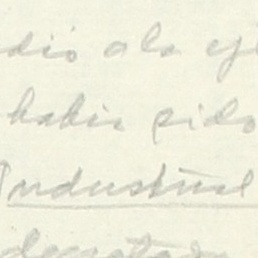 dió a la ej
había sido
Industrial